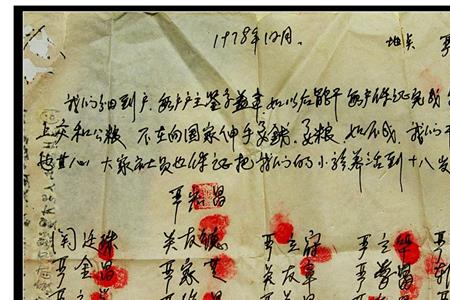 1978年12月。 地点 严
我们分田到户，每户户主签字盖章，如以后能干，每户保证完成
上交和公粮 不在向国家伸手要钱、要粮。如不成，我们干
也甘心，大家社员也保证把我们的小孩养活到十八岁
严宏昌
关廷珠 关友德 严立符 严立华 严
严金昌 严家芝 关友章 严学昌